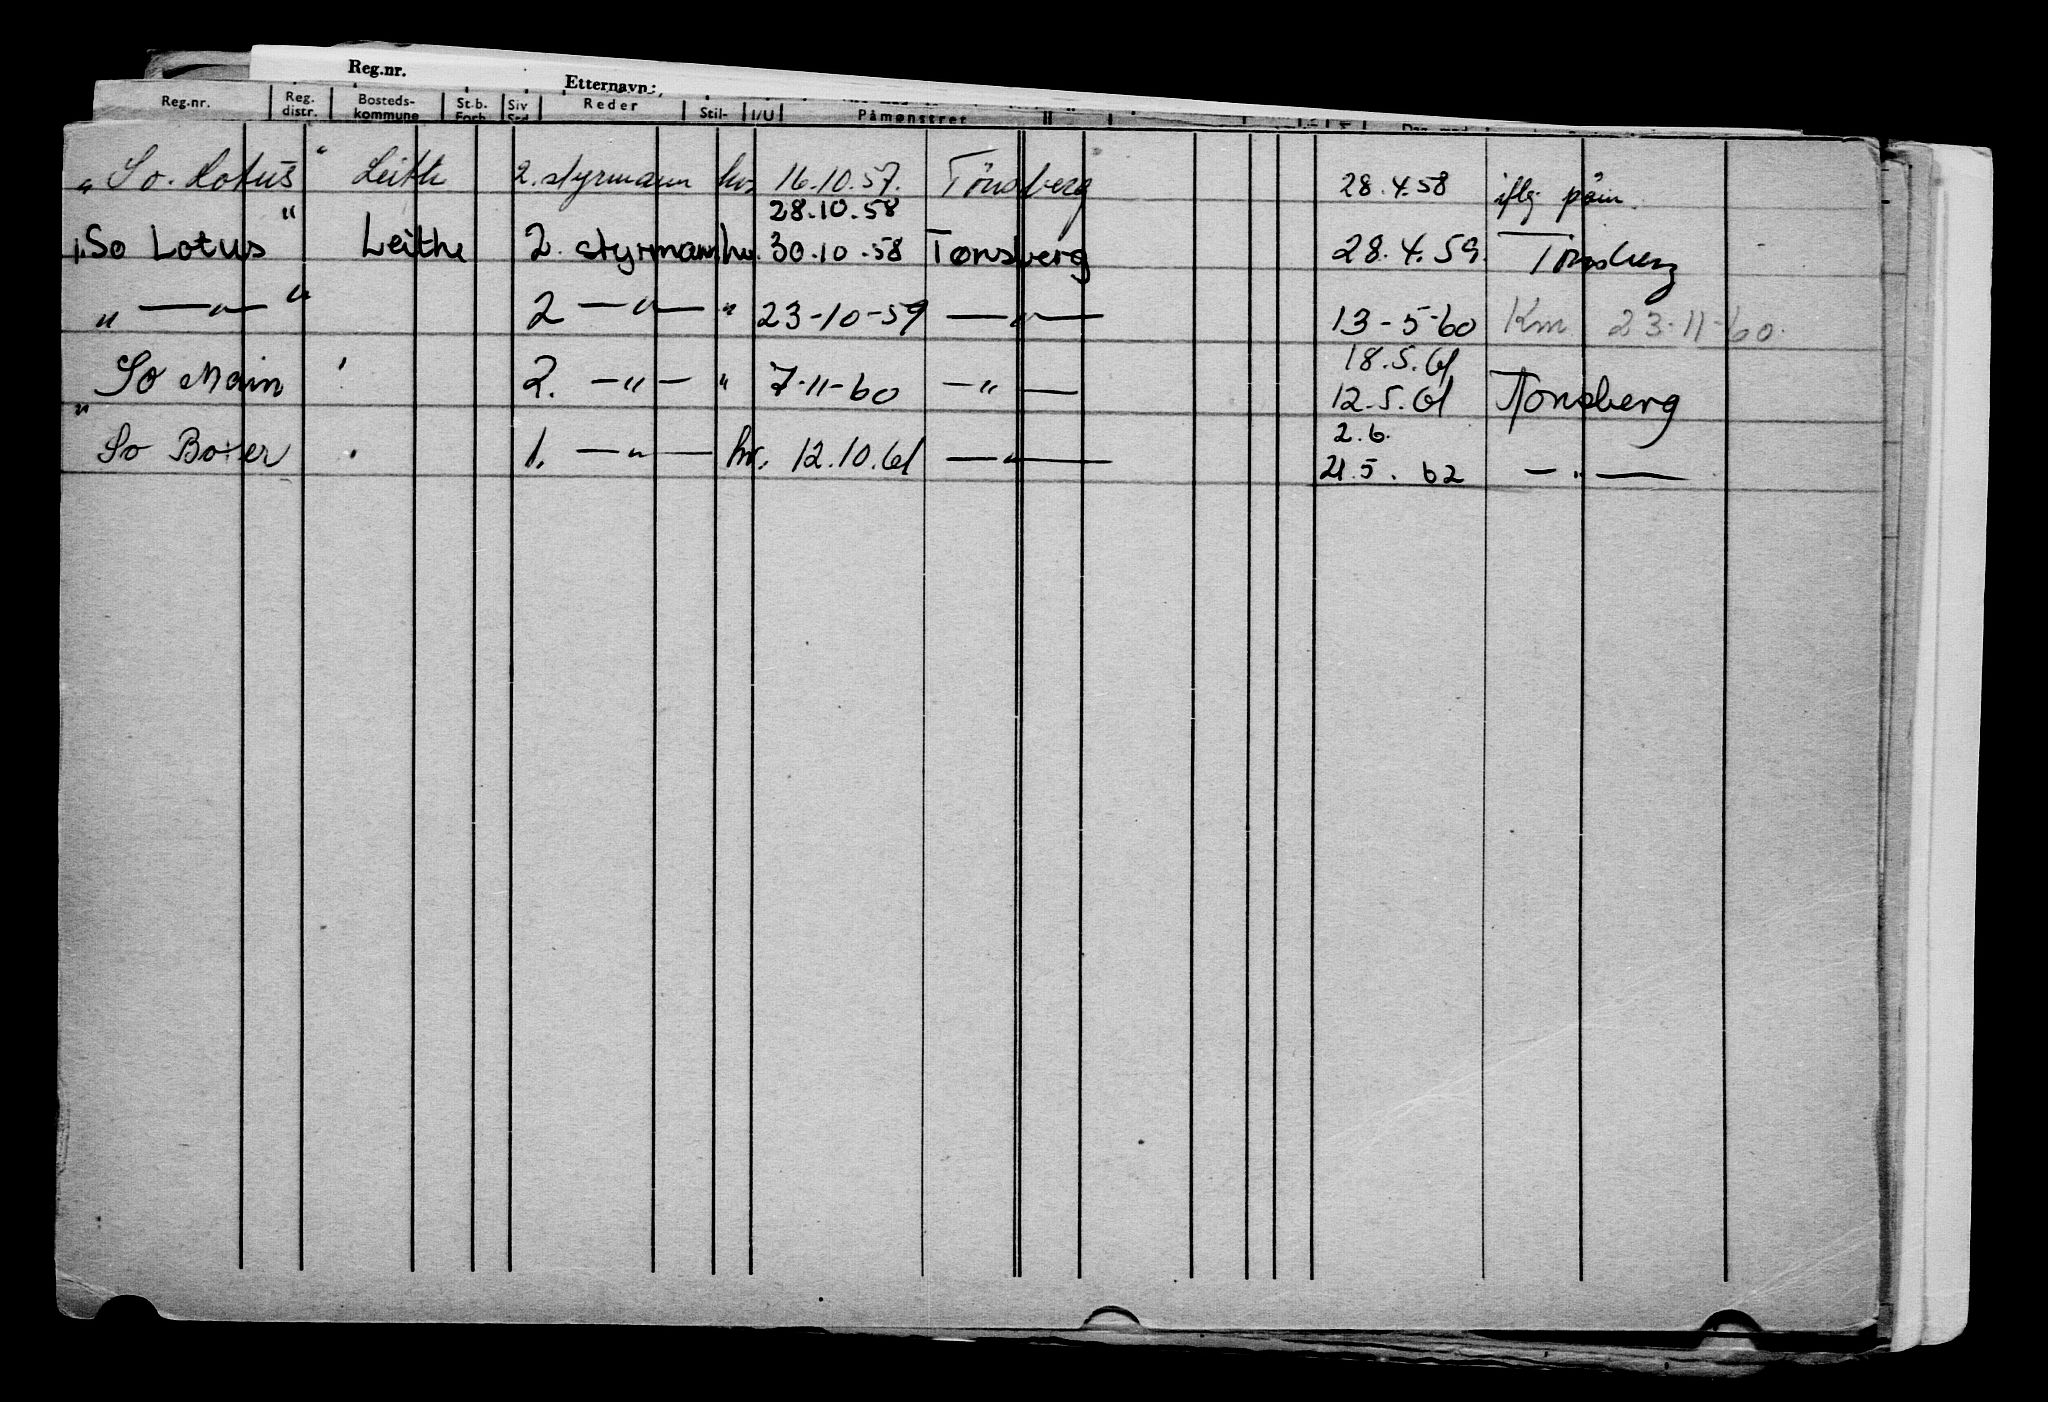 Reg.nr.
Etternavn:
Reg.nr. Reg. distr. Bosteds- kommune St.b. Forb. Siv Std Reder Stil- I/U Påmønstret
„So. Lotus" Leith 2. styrmann hv. 16.10.57. Tönsberg 28.4.58 iflg. påm.
28.10.58
„So Lotus" Leithe 2. styrmann hv. 30.10.58 Tønsberg 28.4.59. Tønsberg
„—"—" 2 —"— " 23-10-59 —"— 13-5-60 Km 23-11-60.
18.5.61
So Main ' 2. —"— " 7-11-60 —"— 12.5.61 Tønsberg
" 2.6.
So Boxer . 1. —"— hv. 12.10.61 —"— 21.5.62 —"—